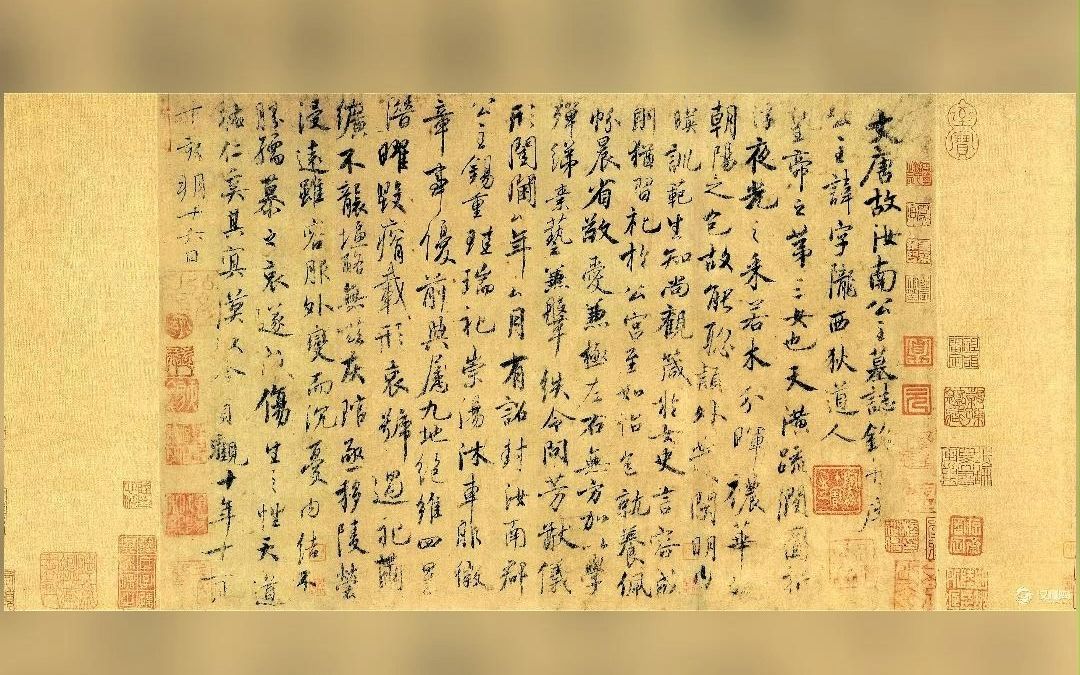 大唐故汝南公主墓誌銘并序
公主諱字隴西狄道人
皇帝之第三女也天潢疏潤圓折
浮夜光之采若木分暉穠華
朝陽之色故能聡穎外發閑明內
暎訓範生知尚觀箴於女史言容成
則猶習礼於公宮至如怡色就養佩
帉晨省敬愛兼極左右無方加以學
殫綈素藝兼鞶紩令問芳猷儀
形閨閫厶年厶月有詔封汝南郡
公主錫重珪瑞礼崇湯沐車服徽
章事優前典屬九地絕維四星
潛曜毀瘠載形哀號過礼繭
纊不襲塩酪無嗞灰琯亟移陵塋
浸遠雖容服外變而沉憂內結不
勝孺慕之哀遂成傷生之性天道
祐仁奚其冥漠以今貞觀十年十一月
丁亥朔十六日